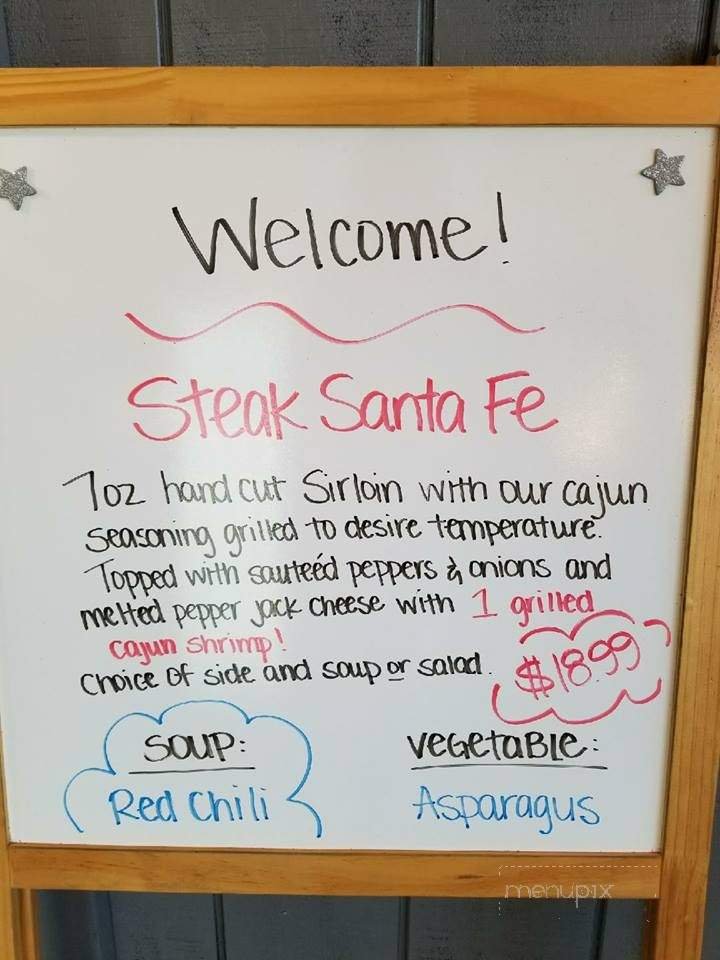 Welcome!
Steak Santa Fe
7oz hand cut Sirloin with our cajun
seasoning grilled to desire temperature.
Topped with sauteéd peppers & onions and
melted pepper jack cheese with 1 grilled
cajun shrimp!
choice of side and soup or salad.
$18.99
SOUP:
Red Chili
VEGETABLE:
Asparagus
menupix